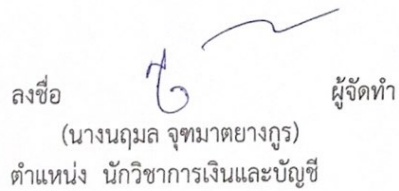 ลงชื่อ ผู้จัดทำ
(นางนฤมล จุฑมาตยางกูร)
ตำแหน่ง นักวิชาการเงินและบัญชี